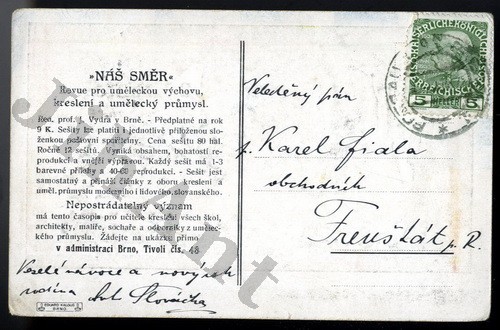 »NÁŠ SMĚR«
Revue pro uměleckou výchovu,
kreslení a umělecký průmysl.
Red. prof. J. Vydra v Brně. - Předplatné na rok
9 K. Sešity lze platiti i jednotlivě přiloženou
složenkou poštovní spořitelny. Cena sešitu 80 hal.
Ročně 12 sešitů. Vyniká obsahem, bohatostí re-
produkcí a vnější výpravou. Každý sešit má 1-3
barevné přílohy i 40-60 reprodukcí. - Sešit jest
samostatný a přináší články z oboru kreslení a
uměl. průmyslu moderního i lidového, slovanského.
Nepostrádatelný význam
má tento časopis pro učitele kreslení všech škol,
architekty, malíře, sochaře a odborníky z umělec-
kého průmyslu. Žádejte na ukázku přímo
v administraci Brno, Tivoli čís. 48
Veselé vánoce a nový rok
rodina Ant. Slováčka
BRNO.
KAISERLICHE KÖNIGLICHE
5 HELLER 5
Veleděný pán
p. Karel Fiala
obchodník
Frenštát p. R.
JimAnt